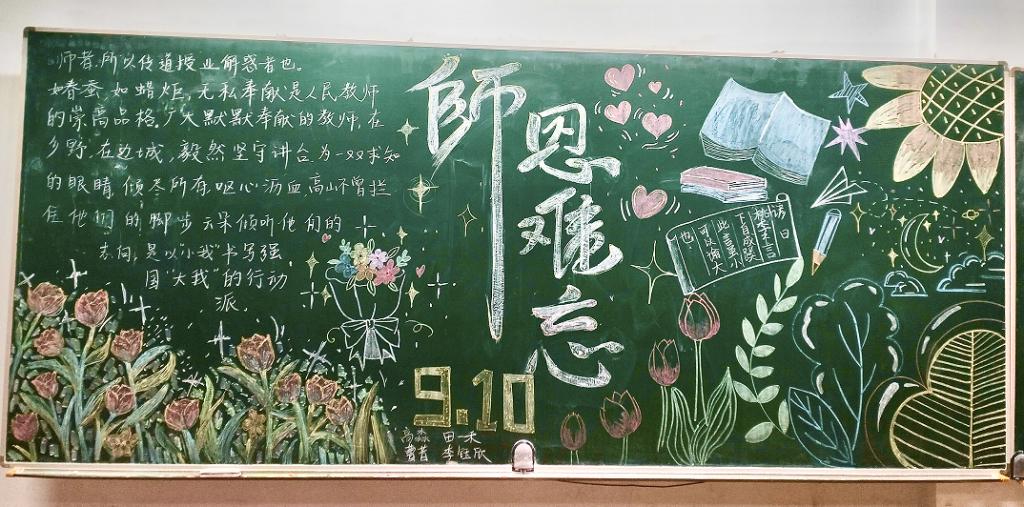 师者,所以传道授业解惑者也。
如春蚕,如蜡炬,无私奉献是人民教师
的崇高品格。广大默默奉献的教师,在
乡野,在边城,毅然坚守讲台,为一双双求知
的眼睛,倾尽所有,呕心沥血,高山不曾拦
住他们的脚步,云朵倾听他们的
志向,是以"小我"书写强
国"大我"的行动
派。
師恩难忘
诗曰
桃李不言
下自成蹊
此言虽小
可以谕大
也
9.10
田禾